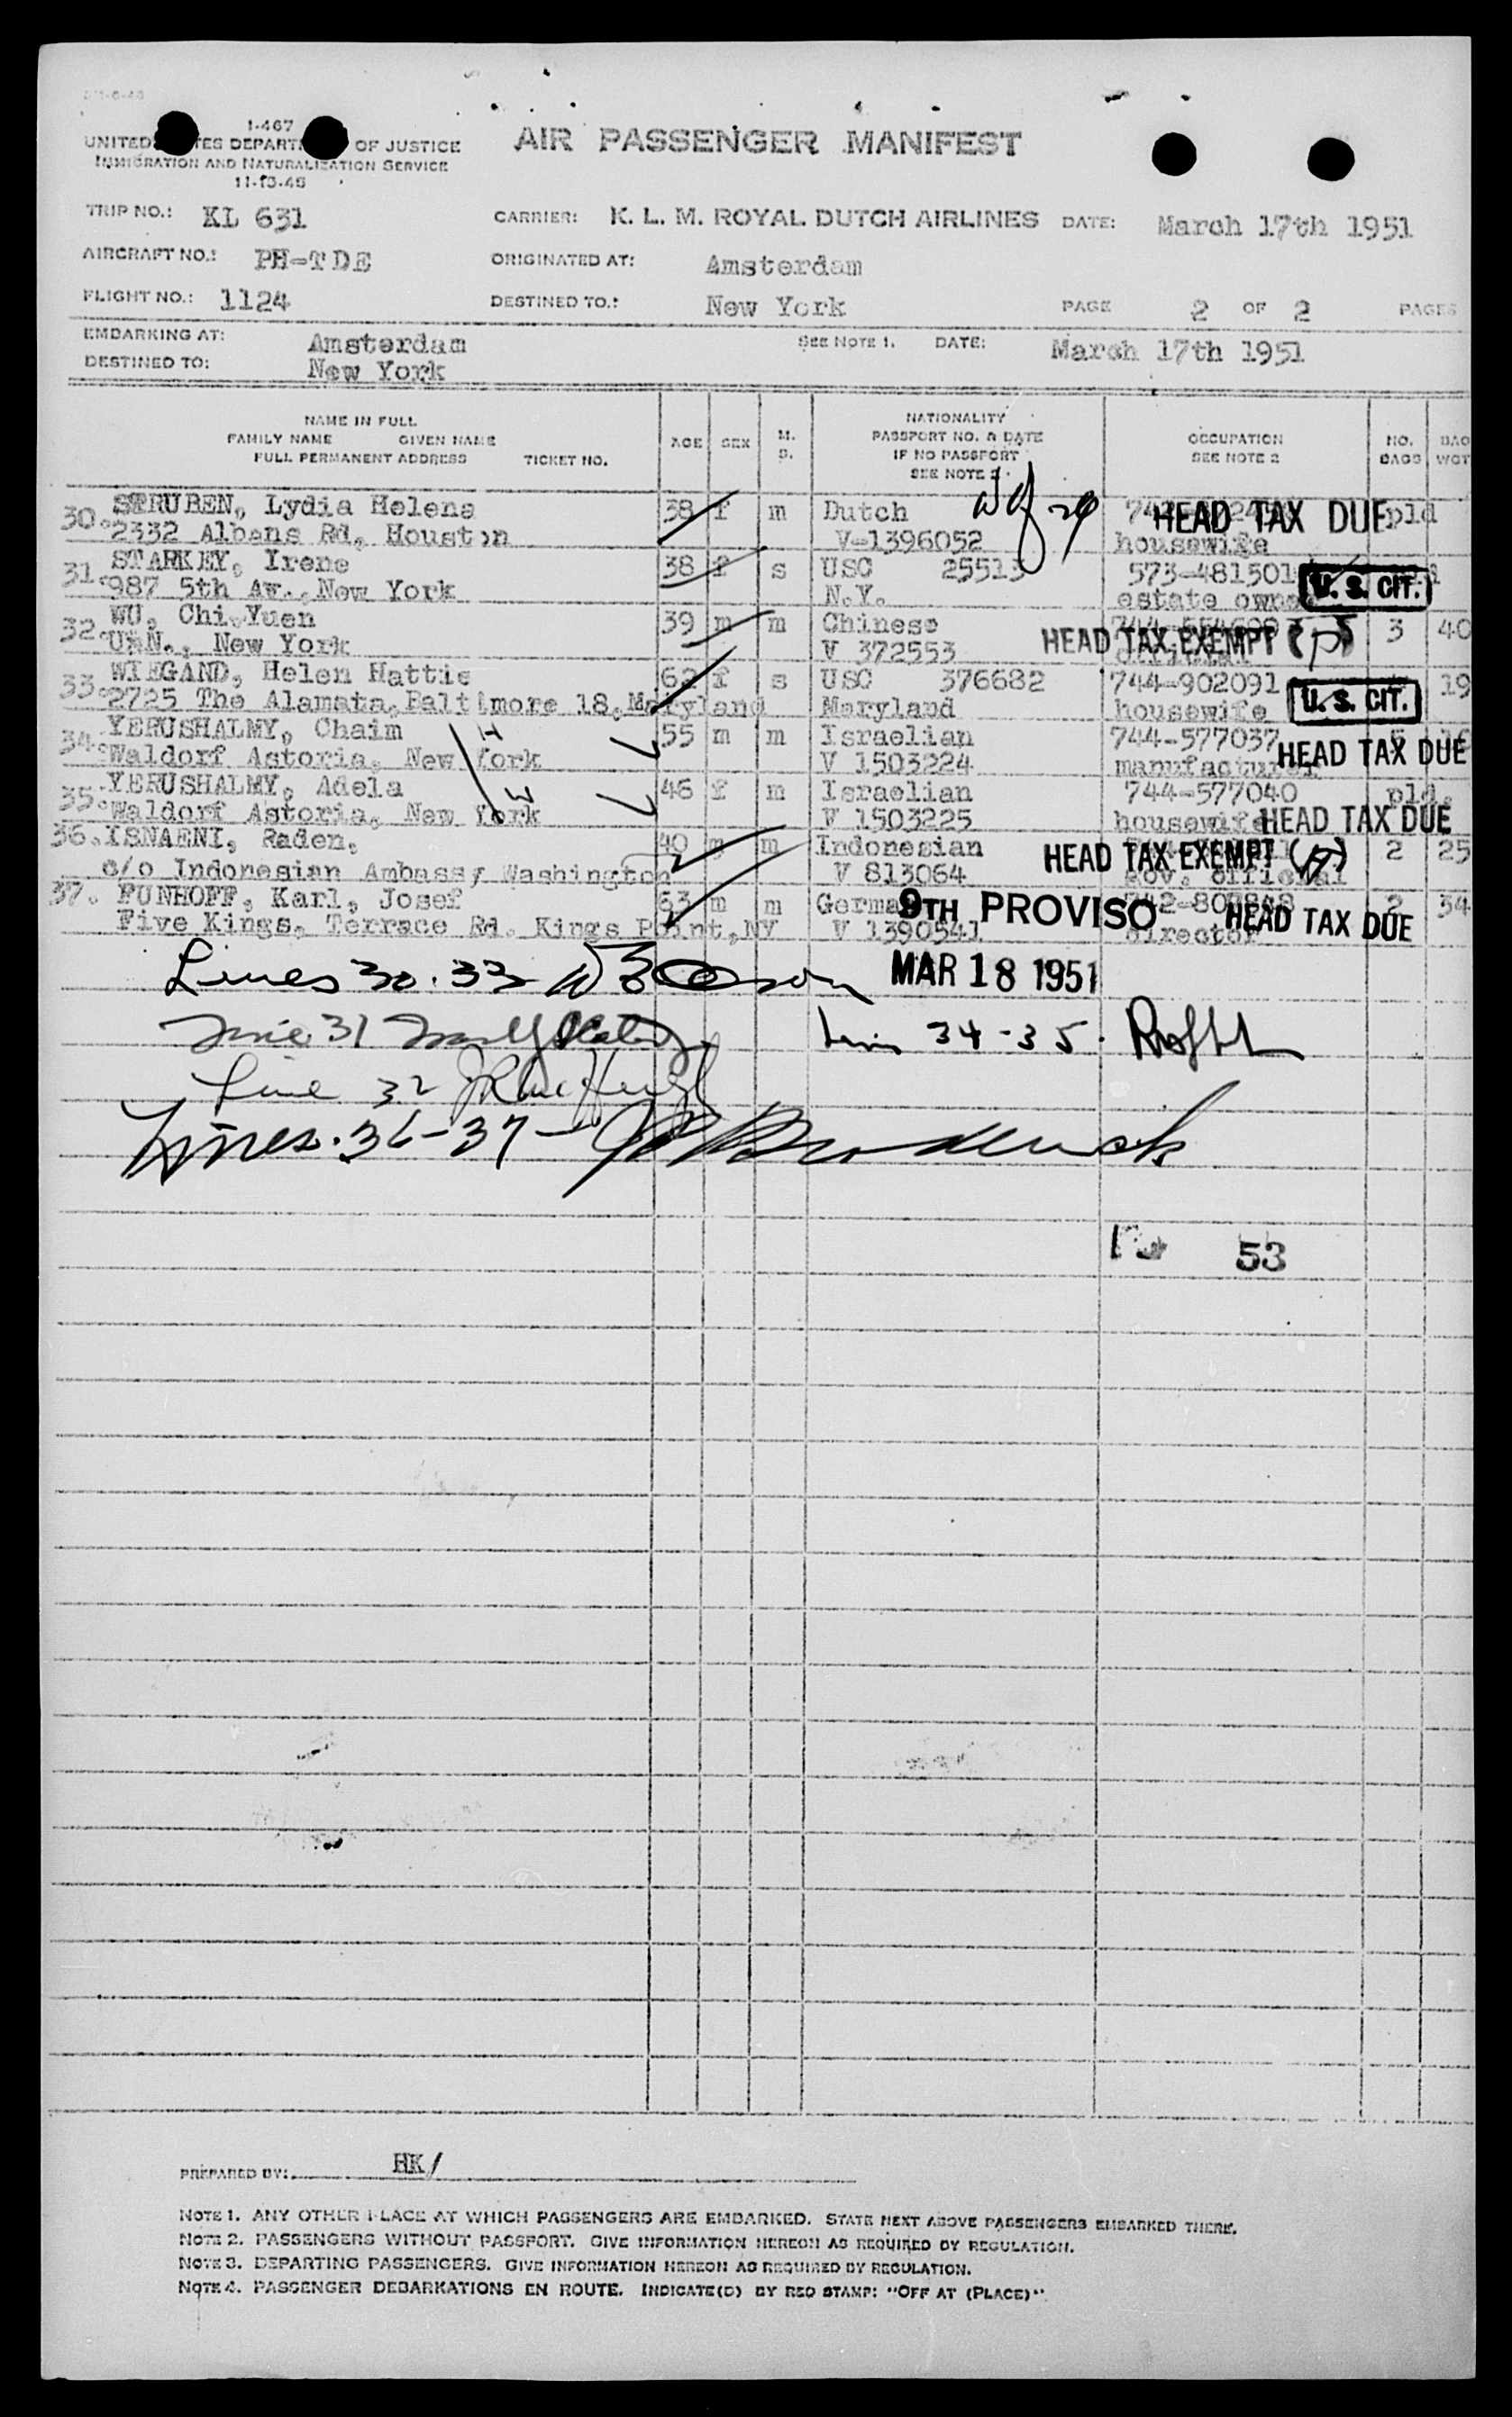 I-467
UNITED STATES DEPARTMENT OF JUSTICE
IMMIGRATION AND NATURALIZATION SERVICE
AIR PASSENGER MANIFEST
TRIP NO.: KL 631 CARRIER: K. L. M. ROYAL DUTCH AIRLINES DATE: March 17th 1951
AIRCRAFT NO.: PH-TDE ORIGINATED AT: Amsterdam
FLIGHT NO.: 1124 DESTINED TO.: New York PAGE 2 OF 2 PAGES
EMBARKING AT: Amsterdam SEE NOTE 1. DATE: March 17th 1951
DESTINED TO: New York
NAME IN FULL
FAMILY NAME GIVEN NAME
FULL PERMANENT ADDRESS TICKET NO.
AGE SEX M. S.
NATIONALITY
PASSPORT NO. & DATE
IF NO PASSPORT
SEE NOTE 2.
OCCUPATION
SEE NOTE 2
NO. BAGS
BAG WGT
30. STRUBEN, Lydia Helene 38 f m Dutch HEAD TAX DUE pld
2332 Albans Rd, Houston V-1396052 housewife
31. STARKEY, Irene 38 f s USC 25513 573-481501 U. S. CIT.
987 5th Av., New York N.Y. estate owner
32. WU, Chi.Yuen 39 m m Chinese HEAD TAX EXEMPT 3 40
U.N., New York V 372553 official
33. WIEGAND, Helen Hattie 62 f s USC 376682 744-902091 U. S. CIT. 19
2725 The Alamata, Baltimore 18, Maryland Maryland housewife
34. YERUSHALMY, Chaim H 55 m m Israelian 744-577037 HEAD TAX DUE
Waldorf Astoria, New York V 1503224 manufacturer
35. YERUSHALMY, Adela W 46 f m Israelian 744-577040 pld.
Waldorf Astoria, New York V 1503225 housewife HEAD TAX DUE
36. ISNAENI, Raden, 40 m m Indonesian HEAD TAX EXEMPT 2 25
c/o Indonesian Ambassy Washington V 813064 gov. official
37. FUNHOFF, Karl, Josef 63 m m German 9TH PROVISO HEAD TAX DUE 2 34
Five Kings, Terrace Rd. Kings Point, NY V 1390541 director
Lines 30-33 MAR 18 1951
Line 31 Lines 34-35.
Line 32
Lines 36-37
53
PREPARED BY: HK/
NOTE 1. ANY OTHER PLACE AT WHICH PASSENGERS ARE EMBARKED. STATE NEXT ABOVE PASSENGERS EMBARKED THERE.
NOTE 2. PASSENGERS WITHOUT PASSPORT. GIVE INFORMATION HEREON AS REQUIRED BY REGULATION.
NOTE 3. DEPARTING PASSENGERS. GIVE INFORMATION HEREON AS REQUIRED BY REGULATION.
NOTE 4. PASSENGER DEBARKATIONS EN ROUTE. INDICATE(D) BY RED STAMP: "OFF AT (PLACE)"